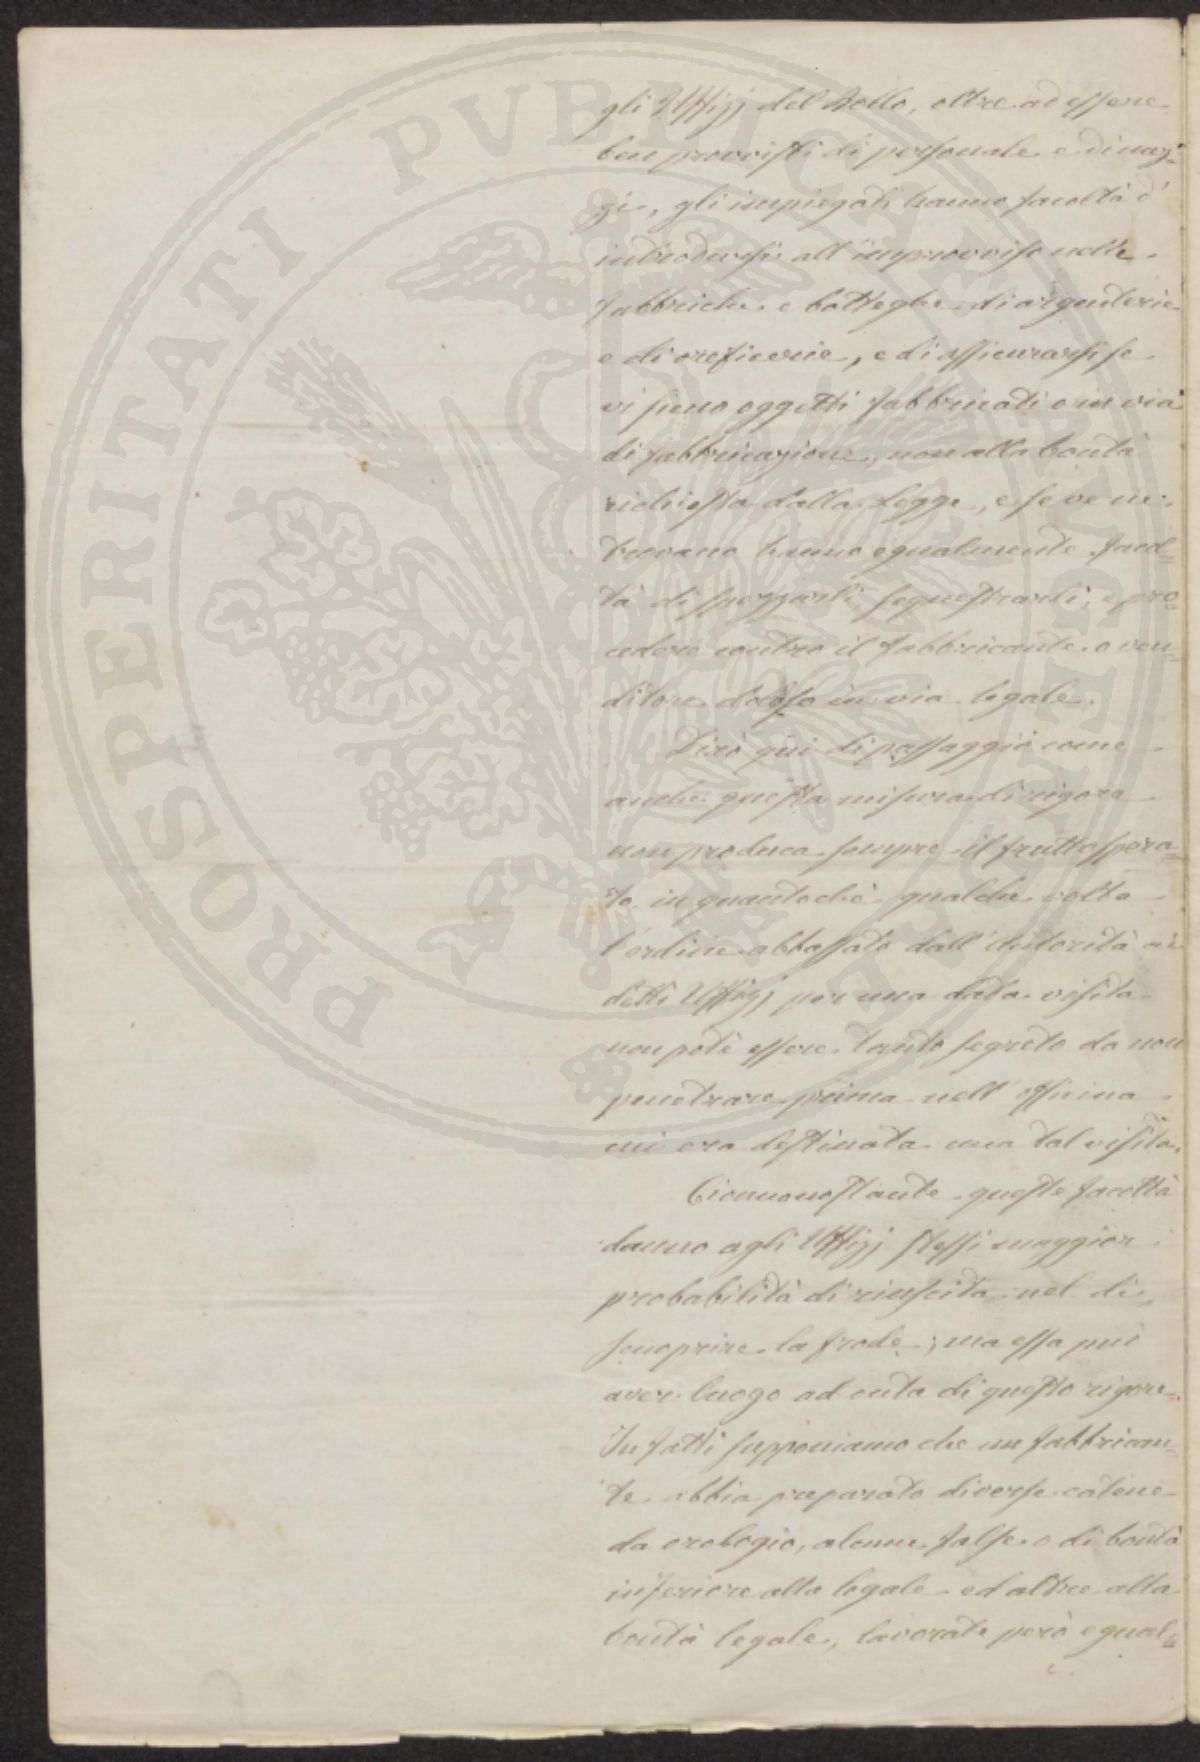 gli Uffizj del Bollo, oltre ad essere
ben provvisti di personale e di mez=
zi, gli impiegati hanno facoltà d'
introdursi all'improvviso nelle
fabbriche e botteghe di argenterie
e di oreficerie, e di assicurarsi se
vi sieno oggetti fabbricati o in via
di fabbricazione, non alla bontà
richiesta dalla Legge, e se ve ne
trovano hanno egualmente facol=
tà di spezzarli, sequestrarli, e pro=
cedere contro il fabbricante o ven=
ditore doloso in via legale.
Dirò qui di passaggio come
anche questa misura di rigore
non produca sempre il frutto spera=
to in quantochè qualche volta
l'ordine abbassato dall'Autorità ai
detti Uffizj per una data visita
non potè essere tanto segreto da non
penetrare prima nell'officina
cui era destinata una tal visita.
Ciononostante queste facoltà
danno agli Uffizj stessi maggior
probabilità di riuscita nel di=
scuoprire la frode; ma essa può
aver luogo ad onta di questo rigore.
In fatti supponiamo che un fabbrican=
te abbia preparato diverse catene
da orologio, alcune false o di bontà
inferiore alla legale ed altre alla
bontà legale, lavorate però egual=
PROSPERITATI PUBLICAE AUGENDAE